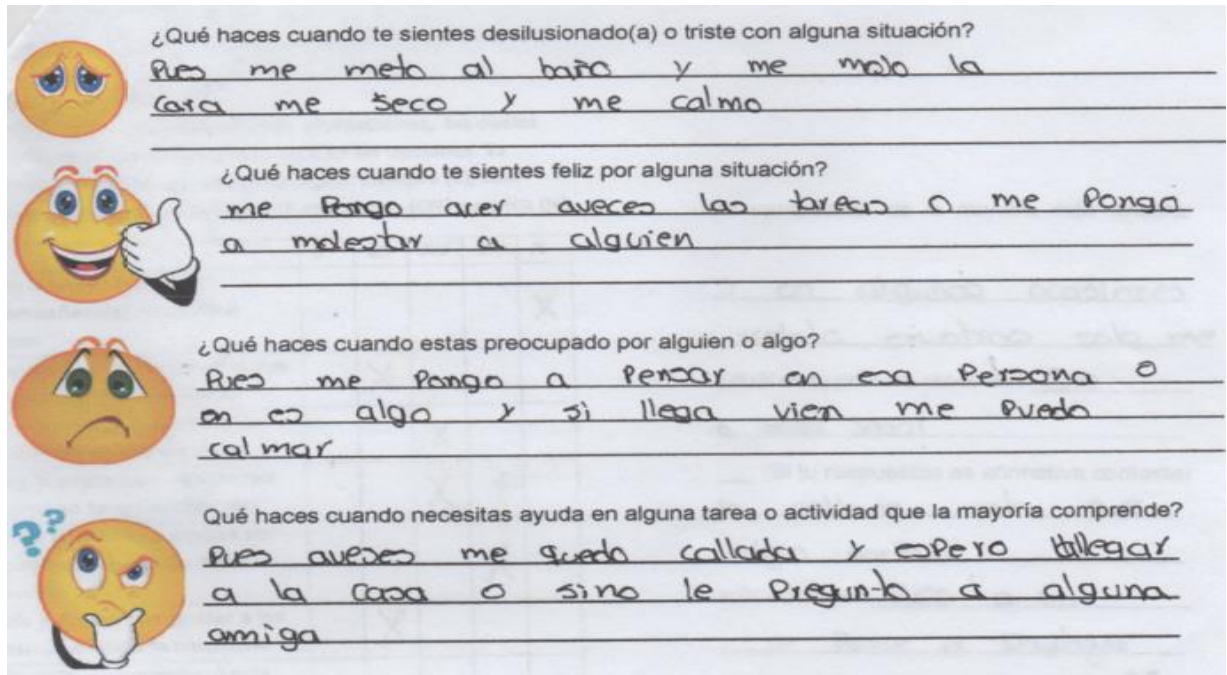 ¿Qué haces cuando te sientes desilusionado(a) o triste con alguna situación?
Pues me meto al baño y me mojo la
cara me seco y me calmo
¿Qué haces cuando te sientes feliz por alguna situación?
me Pongo acer aveces las tareas o me Pongo
a molestar a alguien
¿Qué haces cuando estas preocupado por alguien o algo?
Pues me Pongo a Pensar en esa Persona o
en es algo y si llega vien me Puedo
calmar
Qué haces cuando necesitas ayuda en alguna tarea o actividad que la mayoría comprende?
??
Pues aveses me quedo callada y espero llegar
a la casa o sino le Pregunto a alguna
amiga